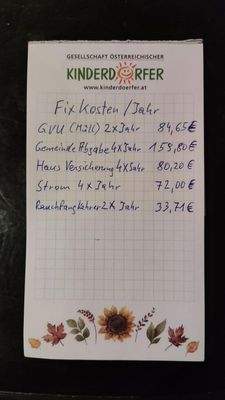 GESELLSCHAFT ÖSTERREICHISCHER
KINDERDORFER
www.kinderdoerfer.at
Fixkosten/Jahr
GVU (Müll) 2xJahr 84,65€
Gemeinde Abgabe 4xJahr 159,80€
Haus Versicherung 4xJahr 80,20€
Strom 4xJahr 72,00€
Rauchfangkehrer 2x Jahr 33,71€